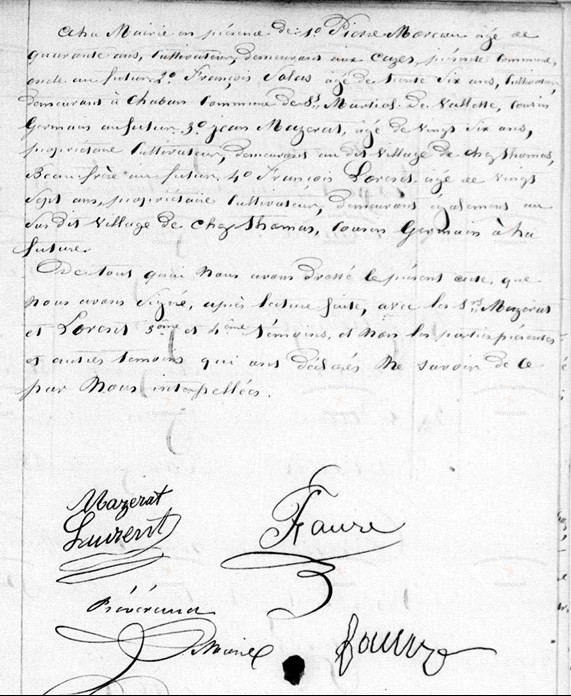 à la Mairie en présence de 1o Pierre Moreau âgé de
quarante ans, Cultivateur, demeurant aux Cazes, présente Commune,
oncle au futur, 2o François Salas âgé de trente six ans, Cultivateur,
demeurant à Chaban Commune de St Martial-De Vallette, Cousin
Germain au futur, 3o jean Mazerat, âgé de vingt six ans,
propriétaire Cultivateur, demeurant au dit village de chez Thomas,
Beau frère au futur, 4o François Lorent âgé de vingt
sept ans, propriétaire Cultivateur, demeurant également au
sus dit village de chez Thomas, Cousin Germain à la
future.
De tout quoi Nous avons dressé le présent acte, que
Nous avons Signé, après lecture faite, avec les Srs Mazerat
et Lorent 3ème et 4ème témoins, et Non les parties présentes
et autres témoins qui ont déclarés Ne savoir de Ce
par Nous interpellées.
Mazerat
Laurent
Faure
Maire